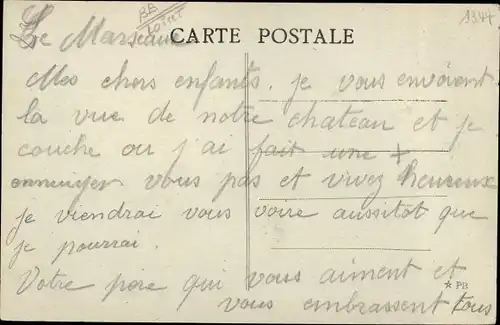 1344
Le Marseau
CARTE POSTALE
Mes chers enfants. je vous envoient
la vue de notre chateau et je
couche ou j'ai fait une +
ennuyer vous pas et vivez heureux
je viendrai vous voire aussitot que
je pourrai.
Votre pere qui vous aiment et
★ PB
vous embrassent tous